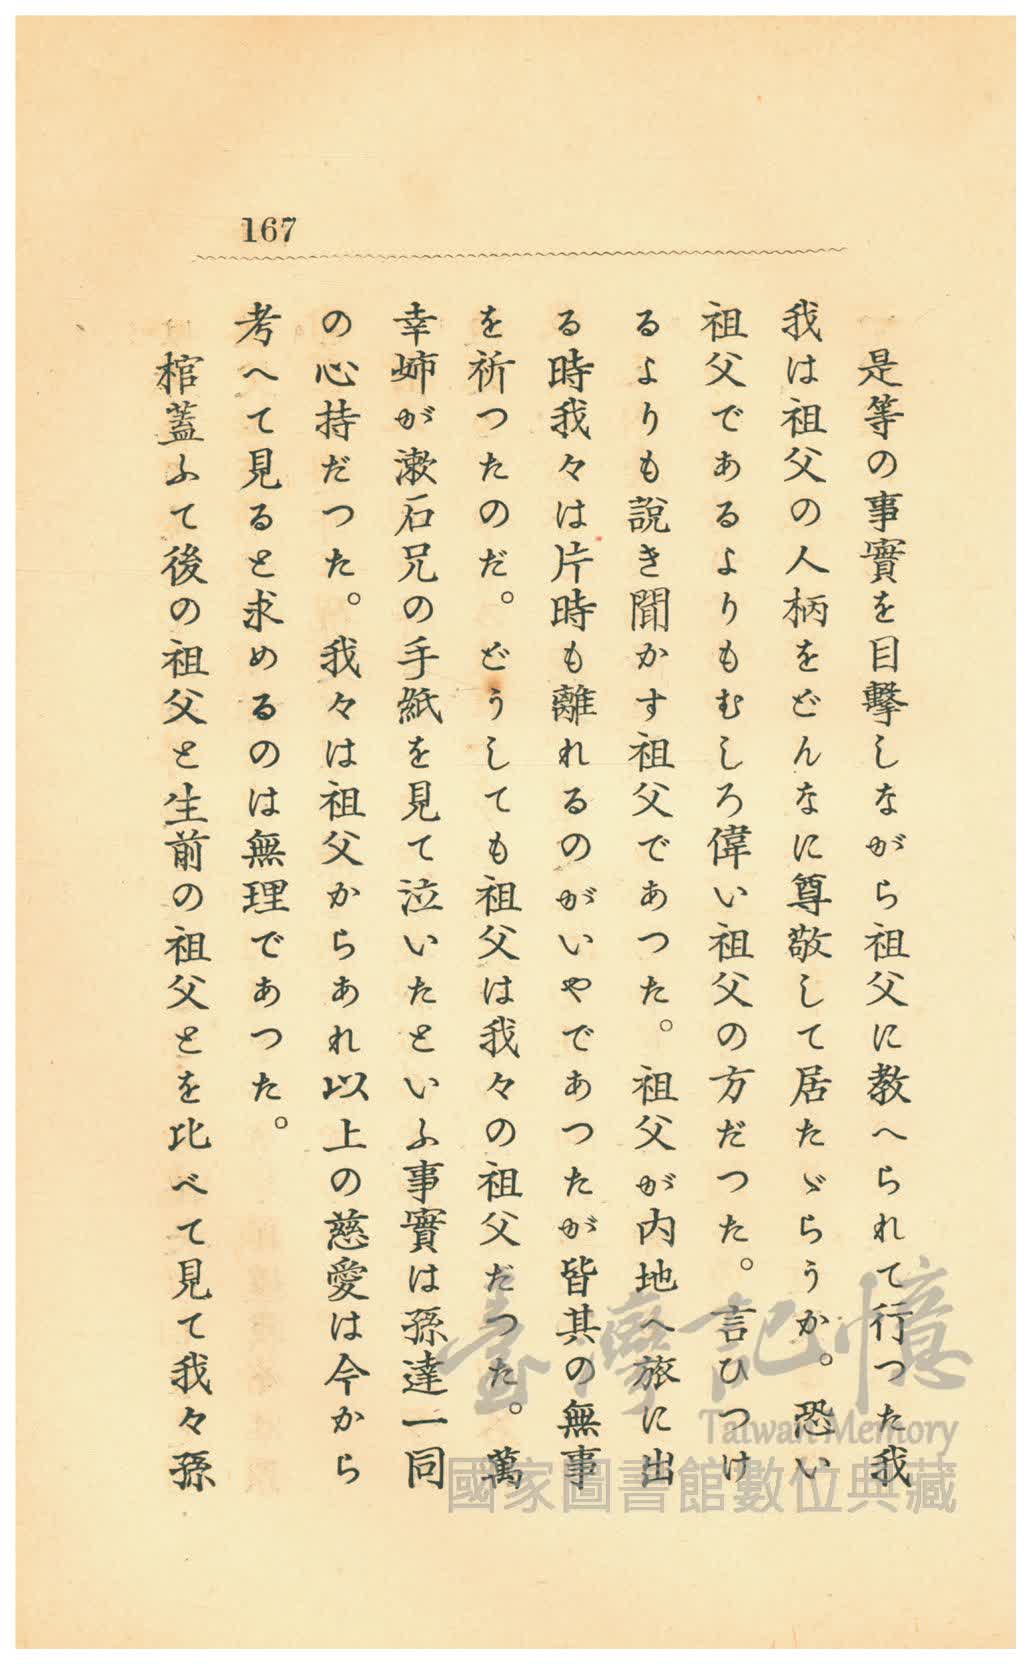 167
是等の事實を目擊しながら祖父に教へられて行つた我
我は祖父の人柄をどんなに尊敬して居たゞらうか。恐い
祖父であるよりもむしろ偉い祖父の方だつた。言ひつけ
るよりも說き聞かす祖父であつた。祖父が内地へ旅に出
る時我々は片時も離れるのがいやであつたが皆其の無事
を祈つたのだ。どうしても祖父は我々の祖父だつた。萬
幸姉が漱石兄の手紙を見て泣いたといふ事實は孫達一同
の心持だつた。我々は祖父からあれ以上の慈愛は今から
考へて見ると求めるのは無理であつた。
棺蓋ふて後の祖父と生前の祖父とを比べて見て我々孫
臺灣記憶
Taiwan Memory
國家圖書館數位典藏